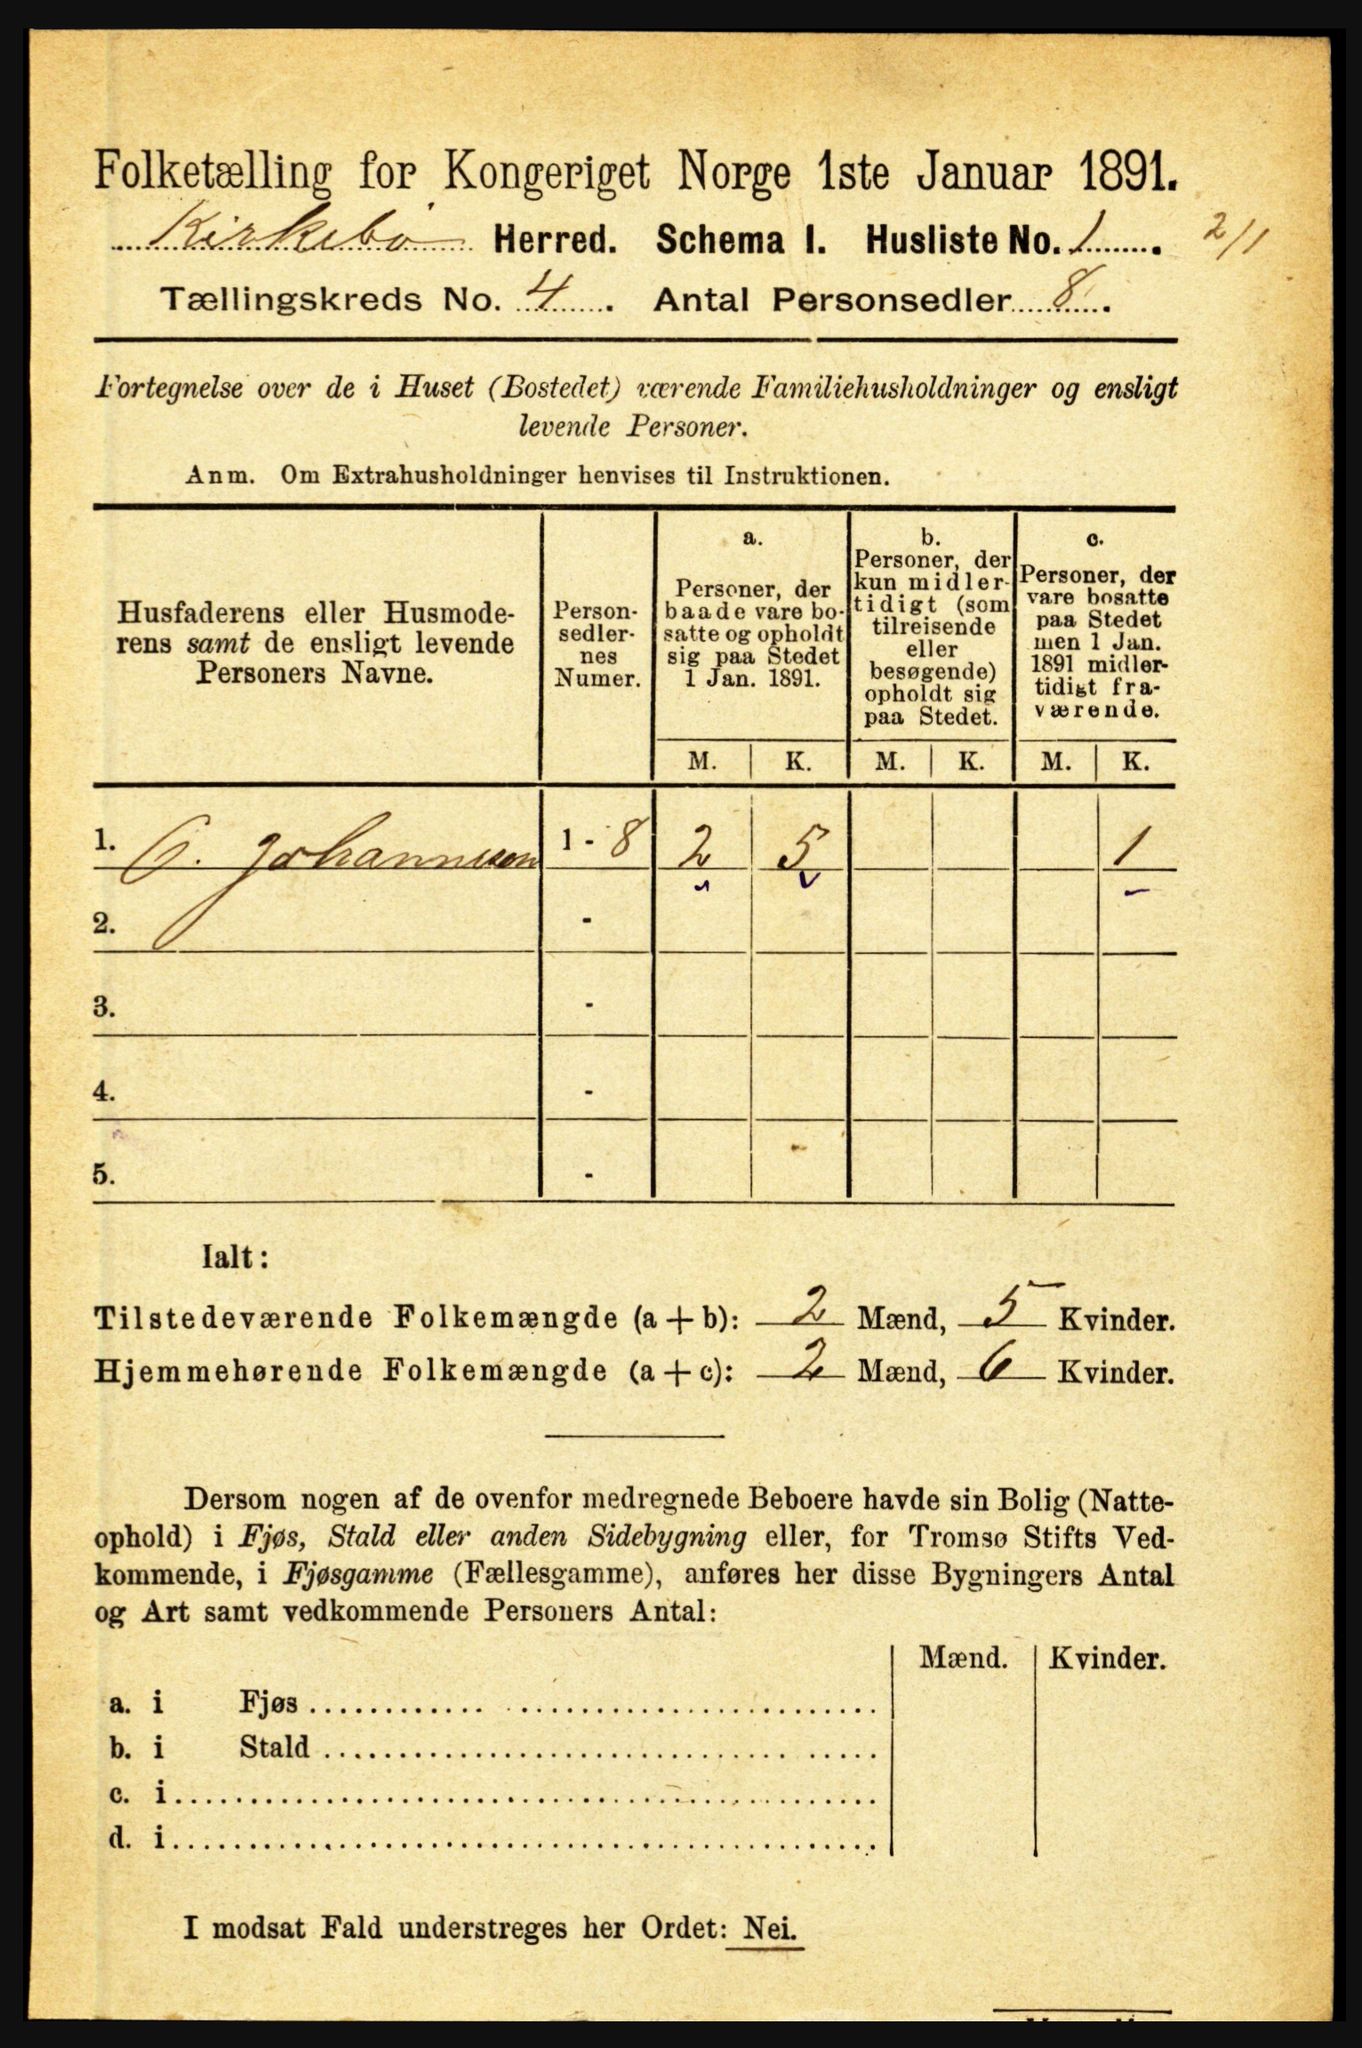 Folketælling for Kongeriget Norge 1ste Januar 1891.
Kirkebø Herred. Schema I. Husliste No. 1. 2/1
Tællingskreds No. 4. Antal Personsedler 8.
Fortegnelse over de i Huset (Bostedet) værende Familiehusholdninger og ensligt
levende Personer.
Anm. Om Extrahusholdninger henvises til Instruktionen.
Husfaderens eller Husmode-
rens samt de ensligt levende
Personers Navne.
Person-
sedler-
nes
Numer.
a.
Personer, der
baade vare bo-
satte og opholdt
sig paa Stedet
1 Jan. 1891.
b.
Personer, der
kun midler-
tidigt (som
tilreisende
eller
besøgende)
opholdt sig
paa Stedet.
c.
Personer, der
vare bosatte
paa Stedet
men 1 Jan.
1891 midler-
tidigt fra-
værende.
M. K. M. K. M. K.
1. O. Johannesen 1 - 8 2 5 1
2. -
3. -
4. -
5. -
Ialt:
Tilstedeværende Folkemængde (a + b): 2 Mænd, 5 Kvinder.
Hjemmehørende Folkemængde (a + c): 2 Mænd, 6 Kvinder.
Dersom nogen af de ovenfor medregnede Beboere havde sin Bolig (Natte-
ophold) i Fjøs, Stald eller anden Sidebygning eller, for Tromsø Stifts Ved-
kommende, i Fjøsgamme (Fællesgamme), anføres her disse Bygningers Antal
og Art samt vedkommende Personers Antal:
Mænd. Kvinder.
a. i Fjøs
b. i Stald
c. i
d. i
I modsat Fald understreges her Ordet: Nei.